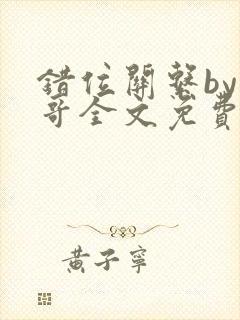 錯位關繫by
哥全文免費
黃子寧